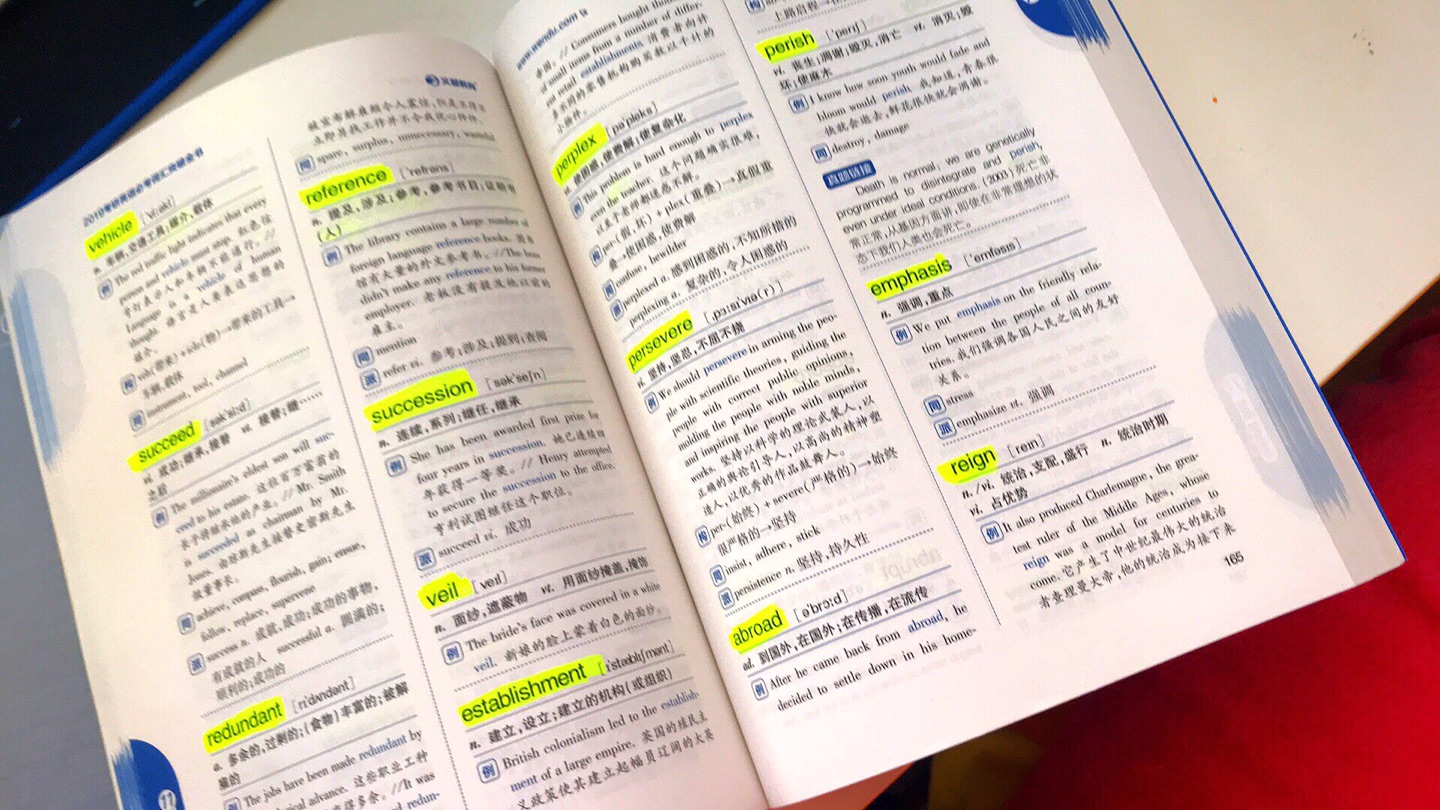 2019考研英语必考词汇突破全书
vehicle ['vi:əkl]
n. 车辆,交通工具;媒介,载体
例 The red traffic light indicates that every
person and vehicle must stop. 红色信
号灯表示人和车辆不许通行。//
Language is a vehicle of human
thought. 语言是人类表达思想的
媒介。
构 veh(带来)+icle(物)→带来的工具→
车辆,载体
同 instrument, tool, channel
succeed [sək'si:d]
vi. 成功;继承,接替 vt. 接替;继……
之后
例 The millionaire's eldest son will suc-
ceed to his estate. 这位百万富翁的
长子将继承他的产业。// Mr. Smith
is succeeded as chairman by Mr.
Jones. 由琼斯先生接替史密斯先生
任董事长。
同 achieve, compass, flourish, gain; ensue,
follow, replace, supervene
派 success n. 成就,成功;成功的事物,
有成就的人 successful a. 圆满的;
顺利的;成功的
redundant [rɪ'dʌndənt]
a. 多余的,过剩的;(食物)丰富的;被解
雇的
例 The jobs have been made redundant by
ical advance. 这些职业工种
得多余。//It was
redun-
11
文都教育
被宣布解雇频令人震惊,但是不得不
立即另找工作并不令我忧心忡忡。
同 spare, surplus, unnecessary, wasteful
reference ['refrəns]
n. 提及,涉及;参考,参考书目;证明书
(人)
例 The library contains a large number of
foreign language reference books. 图书
馆有大量的外文参考书。//The boss
didn't make any reference to his former
employer. 老板没有提及他以前的
雇主。
同 mention
派 refer vi. 参考;涉及;提到;查阅
succession [sək'seʃn]
n. 连续,系列;继任,继承
例 She has been awarded first prize for
four years in succession. 她已连续四
年获得一等奖。// Henry attempted
to secure the succession to the office.
亨利试图继任这个职位。
派 succeed vi. 成功
veil [veɪl]
n. 面纱,遮蔽物 vt. 用面纱掩盖,掩饰
例 The bride's face was covered in a white
veil. 新娘的脸上蒙着白色的面纱。
establishment [ɪ'stæblɪʃmənt]
n. 建立,设立;建立的机构(或组织)
例 British colonialism led to the establish-
ment of a large empire. 英国的殖民主
义政策使其建立起幅员辽阔的大英
www.wendu.com
// Consumers bought thou
of small items from a number of differ-
ent retail establishments. 消费者向许
多不同的零售机构购买数以千计的
小物件。
perplex [pə'pleks]
vt. 使困惑,使费解;使复杂化
例 This problem is hard enough to perplex
even the teacher. 这个问题确实很难,
以至于老师都迷惑不解。
构 per-(假,坏) + plex(重叠)→真假重
叠→使困惑,使费解
同 confuse, bewilder
派 perplexed a. 感到困惑的,不知所措的
perplexing a. 复杂的,令人困惑的
persevere [ˌpɜ:sɪ'vɪə(r)]
vi. 坚持,坚忍,不屈不挠
例 We should persevere in arming the peo-
ple with scientific theories, guiding the
people with correct public opinions,
molding the people with noble minds,
and inspiring the people with superior
works. 坚持以科学的理论武装人,以
正确的舆论引导人,以高尚的精神塑
造人,以优秀的作品鼓舞人。
构 per-(始终) +severe(严格的)→始终
很严格的→坚持
同 insist, adhere, stick
派 persistence n. 坚持,持久性
abroad [ə'brɔ:d]
ad. 到国外,在国外;在传播,在流传
例 After he came back from abroad, he
decided to settle down in his home-
上路启程
perish ['perɪʃ]
vi. 丧生;凋谢;毁灭,消亡 vt. 消灭;毁
坏;使麻木
例 I know how soon youth would fade and
bloom would perish. 我知道,青春很
快就会逝去,鲜花很快就会凋谢。
同 destroy, damage
真题链接
Death is normal; we are genetically
programmed to disintegrate and perish,
even under ideal conditions. (2003) 死亡非
常正常,从基因方面讲,即使在非常理想的状
态下我们人类也会死亡。
emphasis ['emfəsɪs]
n. 强调,重点
例 We put emphasis on the friendly rela-
tion between the people of all coun-
tries. 我们强调各国人民之间的友好
关系。
同 stress
派 emphasize vt. 强调
reign [reɪn]
n./vi. 统治,支配,盛行 n. 统治时期
vi. 占优势
例 It also produced Charlemagne, the grea-
test ruler of the Middle Ages, whose
reign was a model for centuries to
come. 它产生了中世纪最伟大的统治
者查理曼大帝,他的统治成为接下来
165